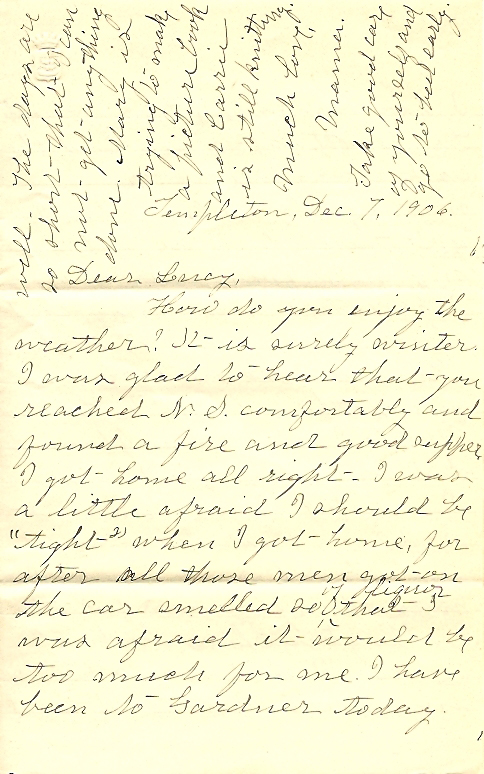 Templeton, Dec. 7, 1906.
Dear Lucy,
How do you enjoy the
weather? It is surely winter.
I was glad to hear that you
reached N. S. comfortably and
found a fire and good supper.
I got home all right. I was
a little afraid I should be
"tight" when I got home, for
after all those men got on
the car smelled so of liquor that I
was afraid it would be
too much for me. I have
been to Gardner today.
well. The days are
so short that I can
not get anything
done. Mary is
trying to make
a picture book
and Carrie
is still knitting.
Much love,
Mamma.
Take good care
of yourself and
go to bed early.